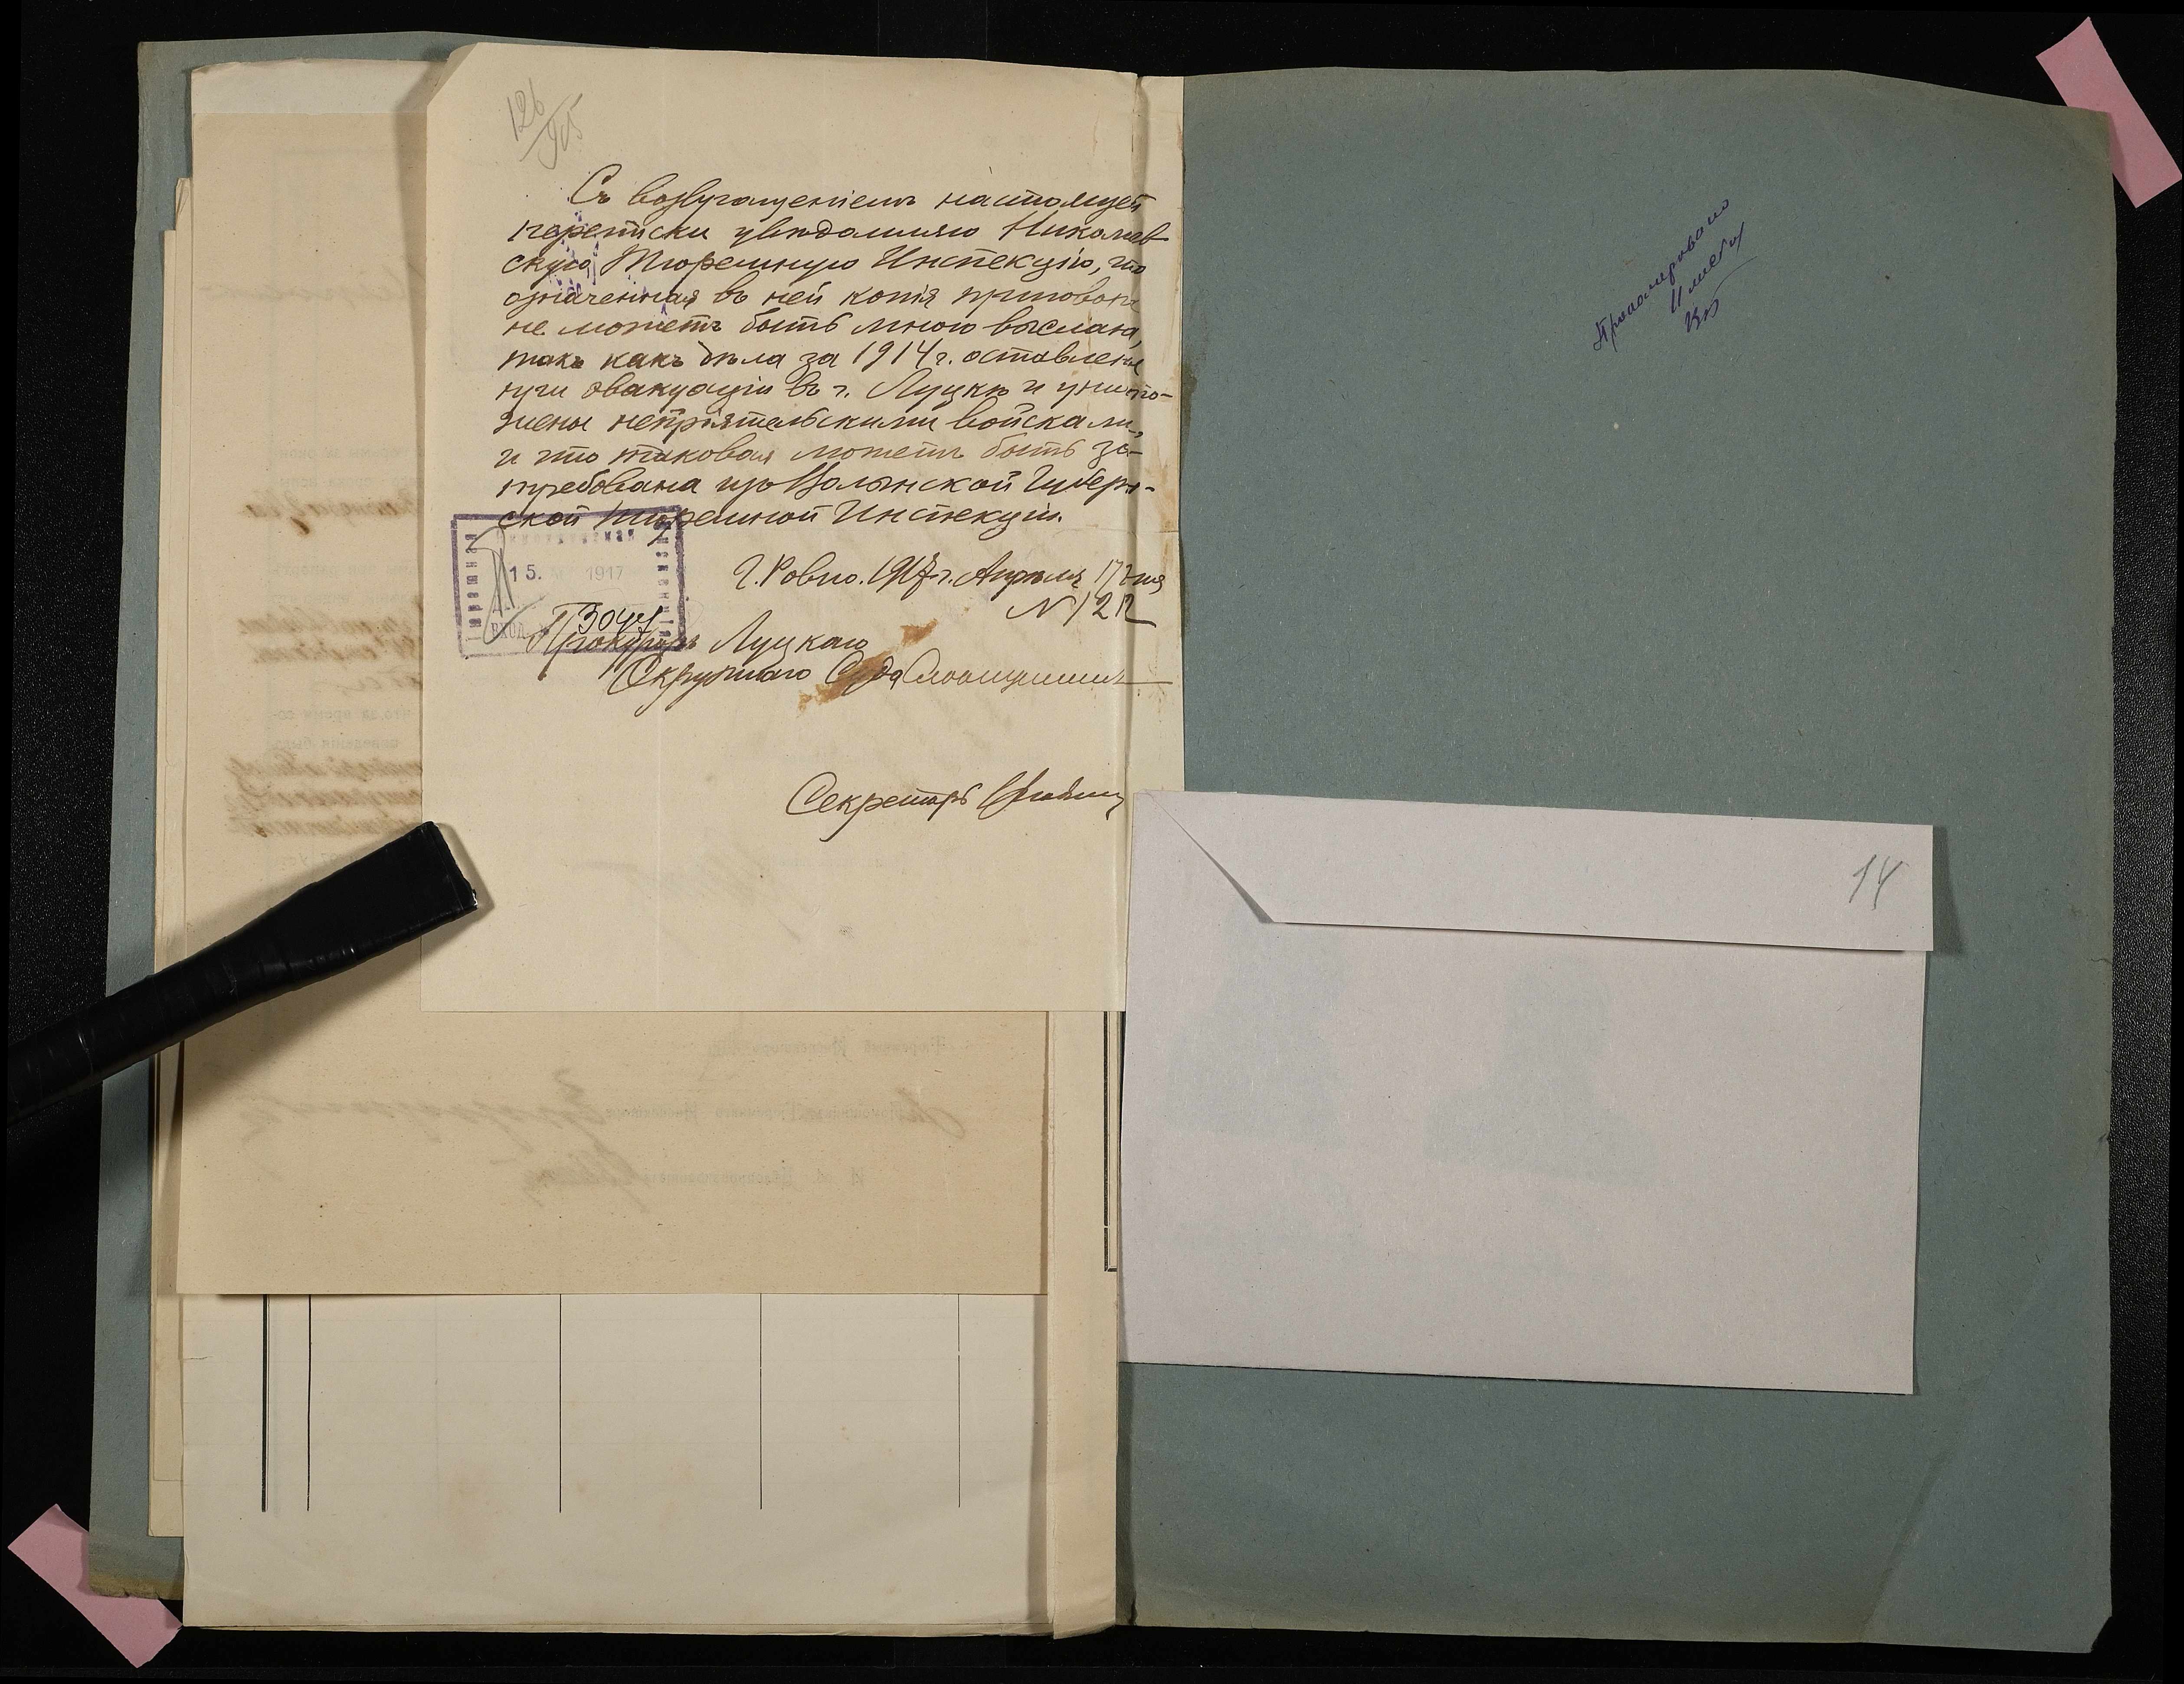 126/915
Съ возвращеніемъ настоящей
переписки увѣдомляю Николаев
скую Тюремную Инспекцію, что
означенная въ ней копія приговора
не можетъ быть мною выслана,
такъ какъ дѣла за 1914 г. оставлены
при эвакуаціи въ г. Луцкѣ и уничто-
жены непріятельскими войсками,
и что таковая можетъ быть за-
требована изъ Волынской Губерн-
ской Тюремной Инспекціи.
15. 1917
Г. Ровно. 1917 г. Апрѣля 17 дня
N 1212
ВХОД. 3044
Прокуроръ Луцкаго
Окружнаго Суда
Секретарь
Пронумеровано
11 листов
14